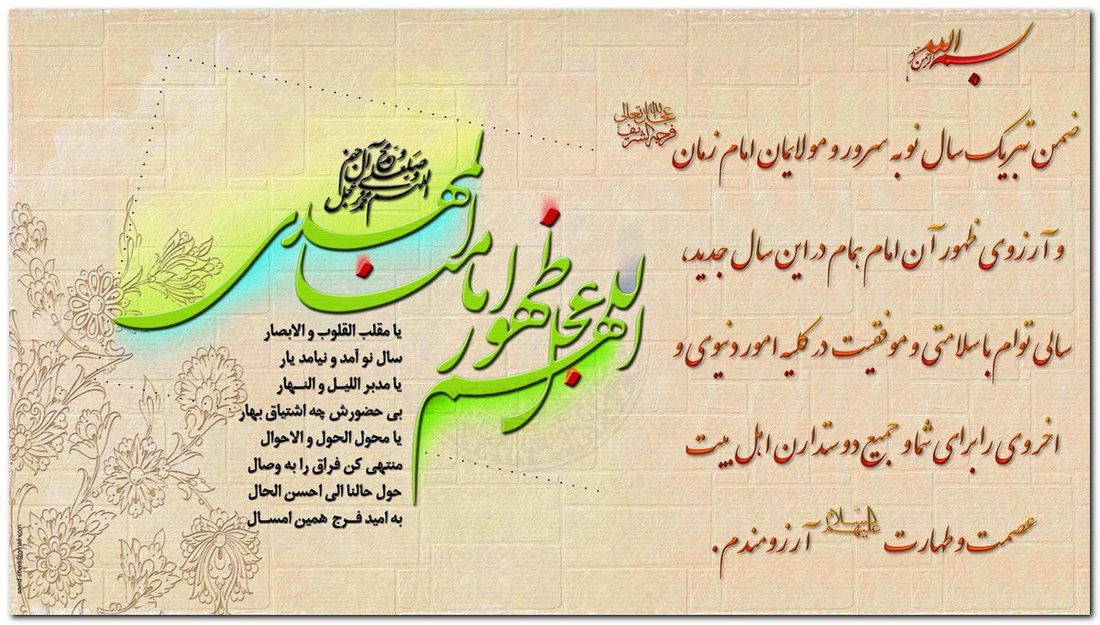 بسم الله الرحمن الرحیم
ضمن تبریک سال نو به سرور و مولایمان امام زمان عجل الله تعالی فرجه الشریف
و آرزوی ظهور آن امام همام در این سال جدید،
سالی توام با سلامتی و موفقیت در کلیه امور دنیوی و
اخروی را برای شما و جمیع دوستدارن اهل بیت
عصمت و طهارت علیهم السلام آرزومندم.
اللهم صل علی محمد و آل محمد و عجل فرجهم
اللهم عجل ظهور امامنا المهدی
یا مقلب القلوب و الابصار
سال نو آمد و نیامد یار
یا مدبر اللیل و النهار
بی حضورش چه اشتیاق بهار
یا محول الحول و الاحوال
منتهی کن فراق را به وصال
حول حالنا الی احسن الحال
به امید فرج همین امسال